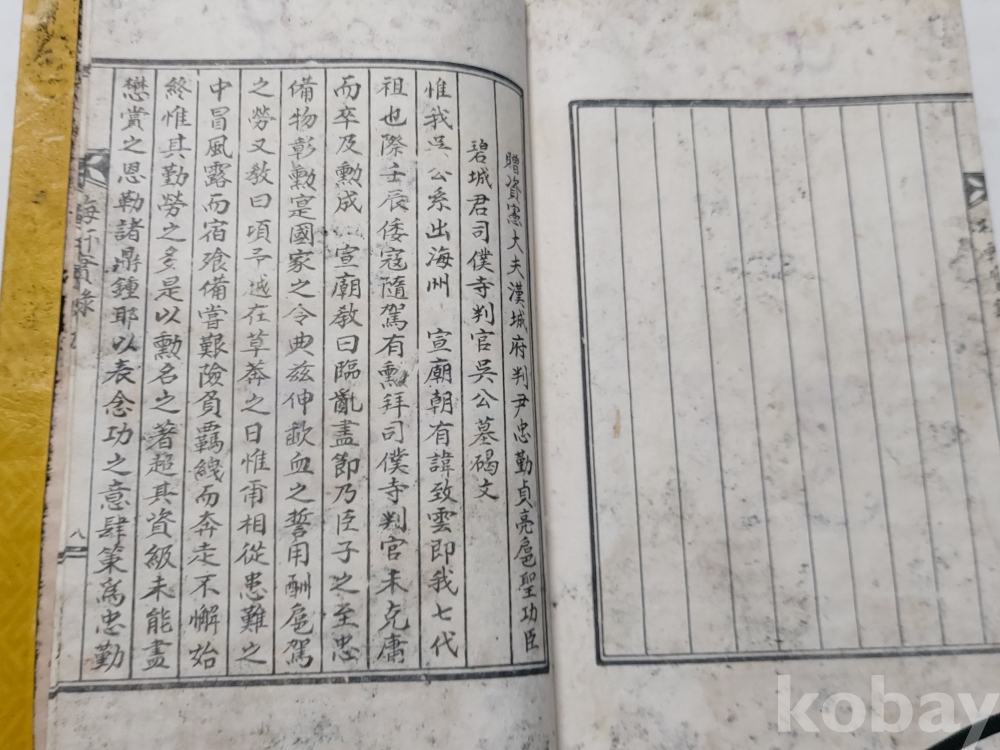 贈資憲大夫漢城府判尹忠勤貞亮扈聖功臣
碧城君司僕寺判官吳公墓碣文
惟我吳公系出海州 宣廟朝有諱致雲即我七代
祖也際壬辰倭寇隨駕有勳拜司僕寺判官未克庸
而卒及勳成 宣廟教曰臨亂盡節乃臣子之至忠
備物彰勳寔國家之令典玆伸歃血之誓用酬扈駕
之勞又教曰頃予越在草莽之日惟甭相從患難之
中冒風露而宿飧備嘗艱險負羈絏而奔走不懈始
終惟其勤勞之多是以勳名之著超其資級未能盡
懋賞之恩勒諸鼎鍾耶以表念功之意肆策爲忠勤
海
實錄
八
kobay